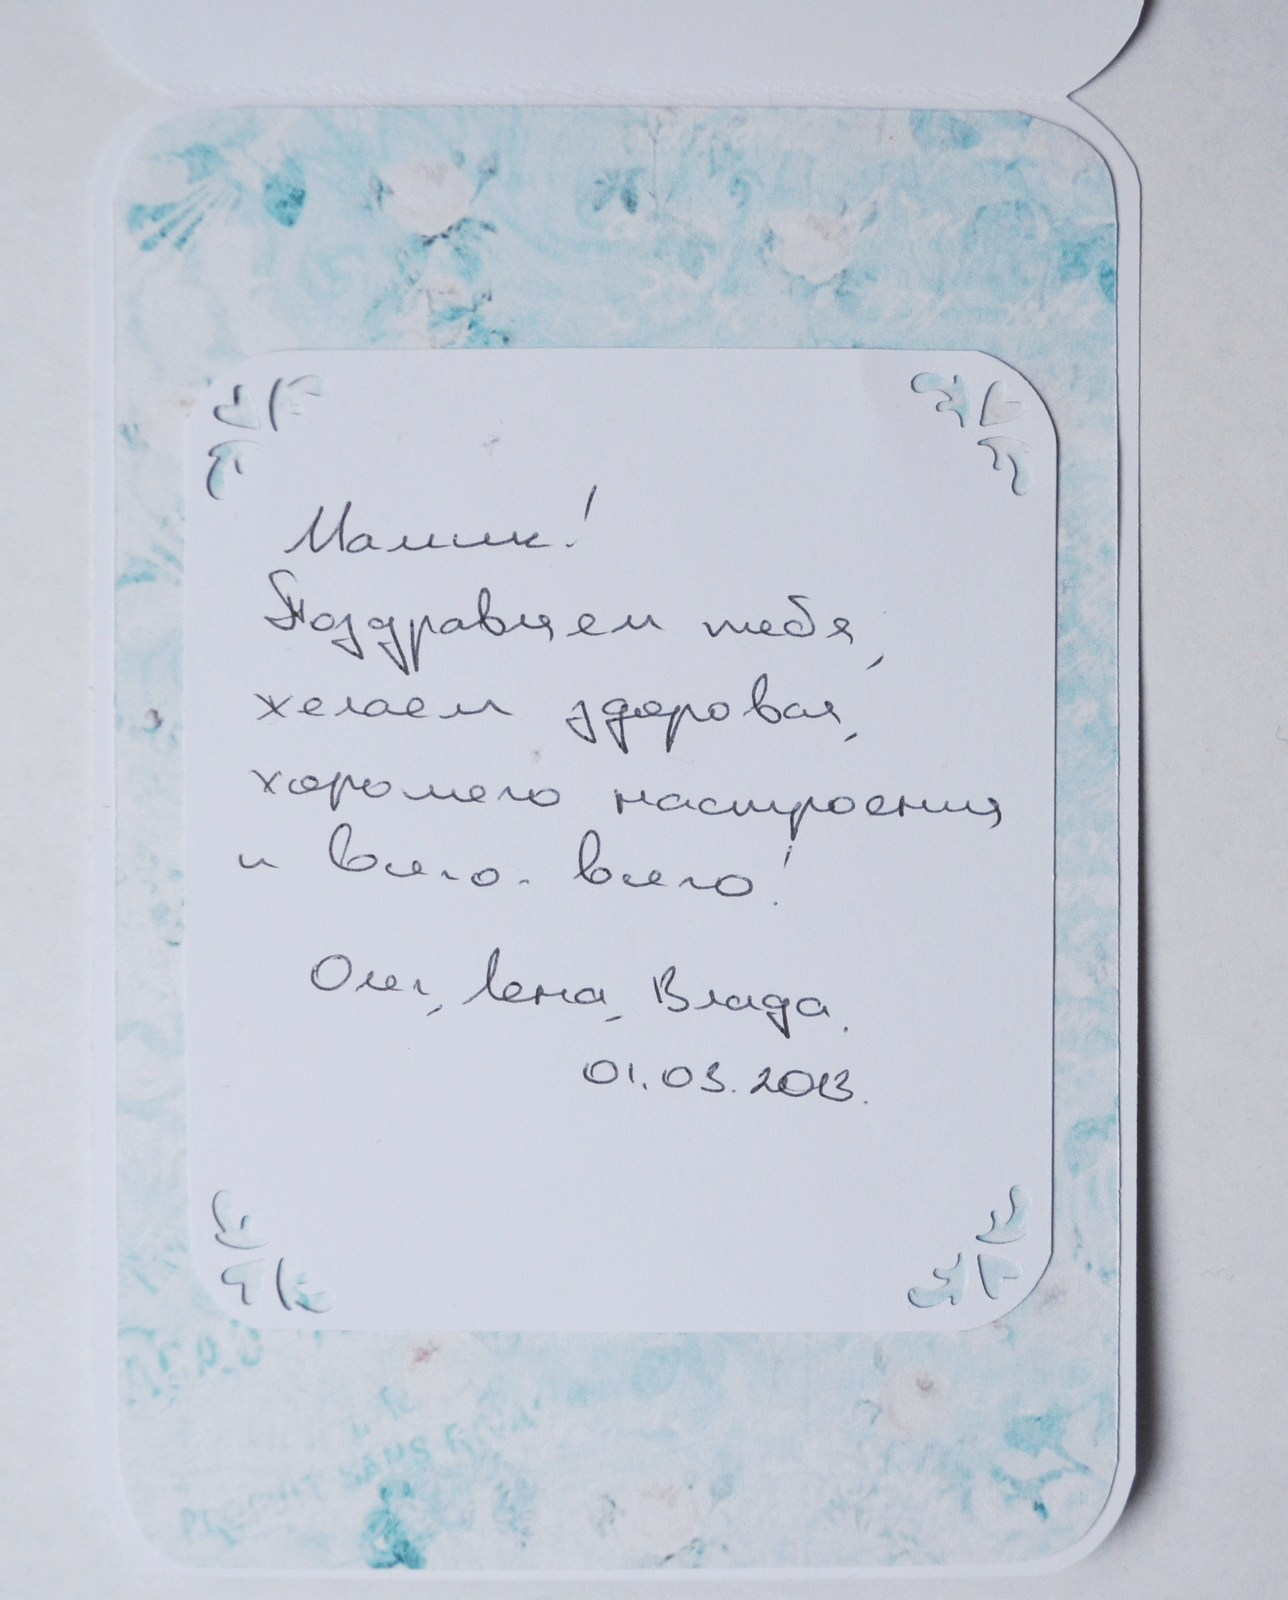 Мамик!
Поздравляем тебя,
желаем здоровья,
хорошего настроения
и всего-всего!
Олег, Лена, Влада.
01.03.2013.
SANS